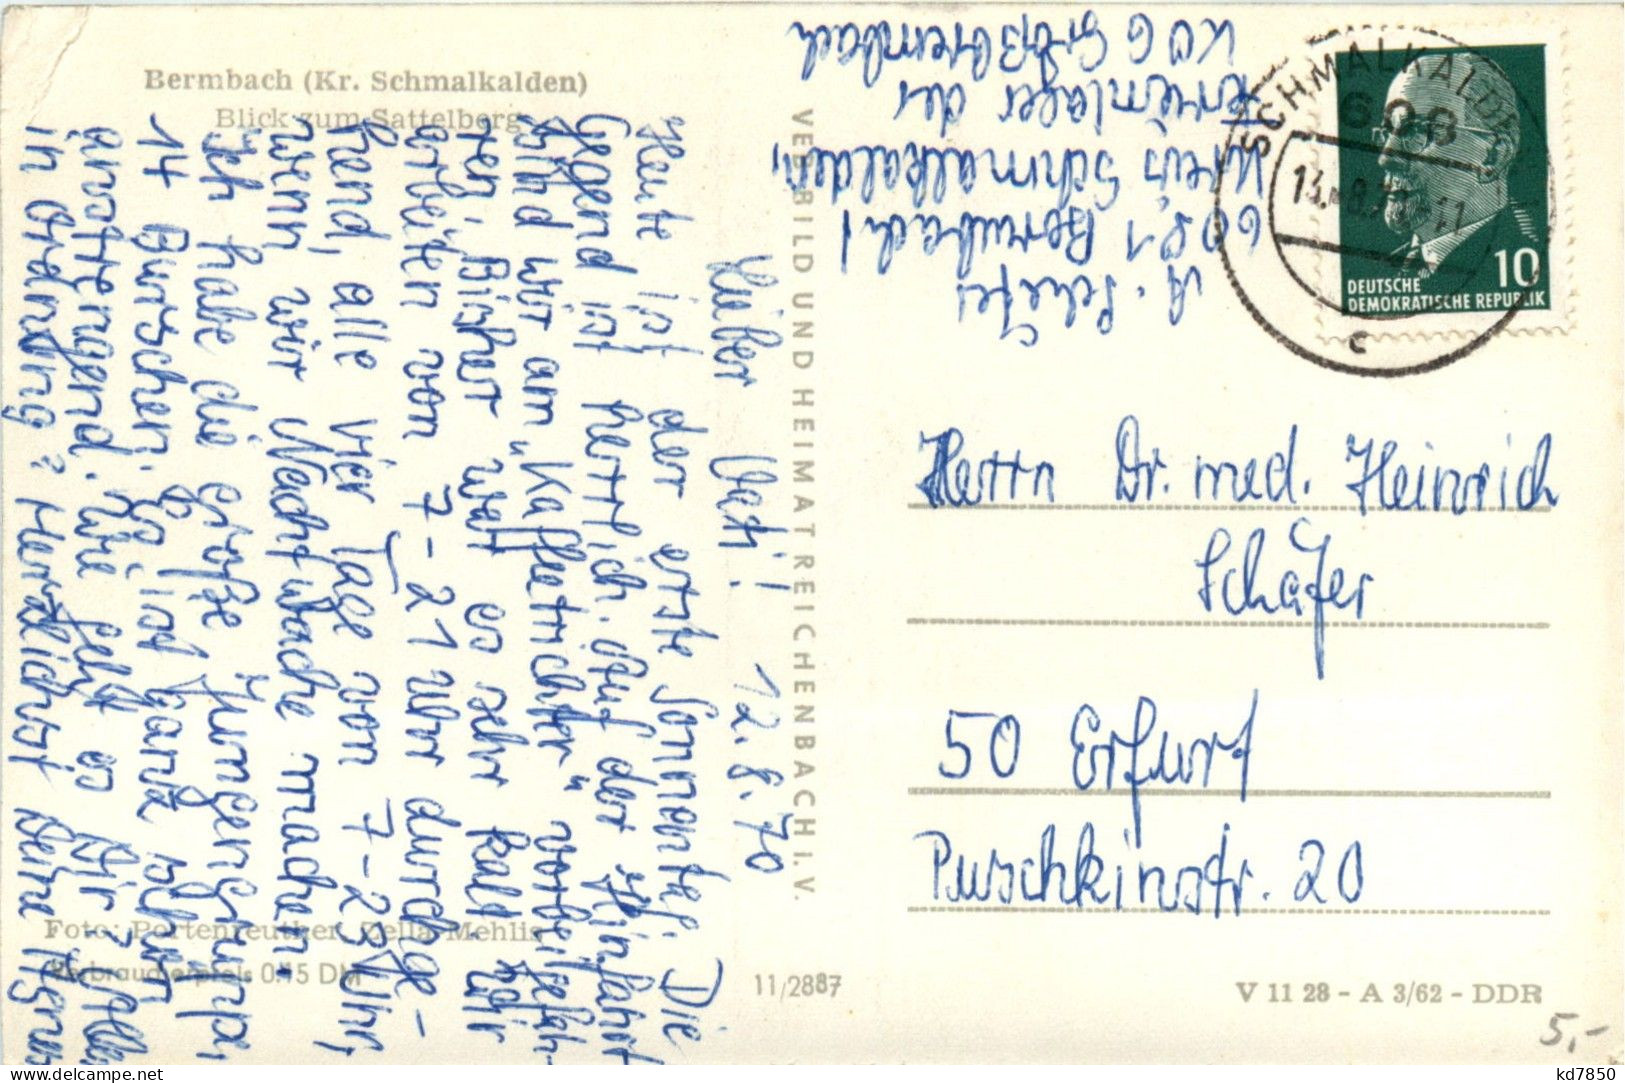 Bermbach (Kr. Schmalkalden)
Blick zum Sattelberg
Lieber Vati! 12.8.70
Heute ist der erste Sonnentag. Die
Gegend ist herrlich. Auf der Hinfahrt
sind wir am "Kaffeetrichter" vorbeigefah-
ren. Bisher war es sehr kalt. Wir
arbeiten von 7-21 Uhr durchge-
hend, alle vier Tage von 7-23 Uhr,
wenn wir Nachtwache machen.
Ich habe die große Jungengruppe,
14 Burschen. Es ist ganz schön
anstrengend. Wie geht es Dir? Alles
in Ordnung? Herzlichst Deine Agnes
Foto: Portenreuther, Zella-Mehlis
Verbraucherpreis 0.15 DM
11/2887
VEB BILD UND HEIMAT REICHENBACH I. V.
A. Schäfer
6081 Bermbach/
Kreis Schmalkalden,
Ferienlager der
KOG Großbrembach
SCHMALKALDEN
608
13.-8.70-11
c
10
DEUTSCHE
DEMOKRATISCHE REPUBLIK
Herrn Dr. med. Heinrich
Schäfer
50 Erfurt
Puschkinstr. 20
V 11 28 - A 3/62 - DDR
5,-
kd7850